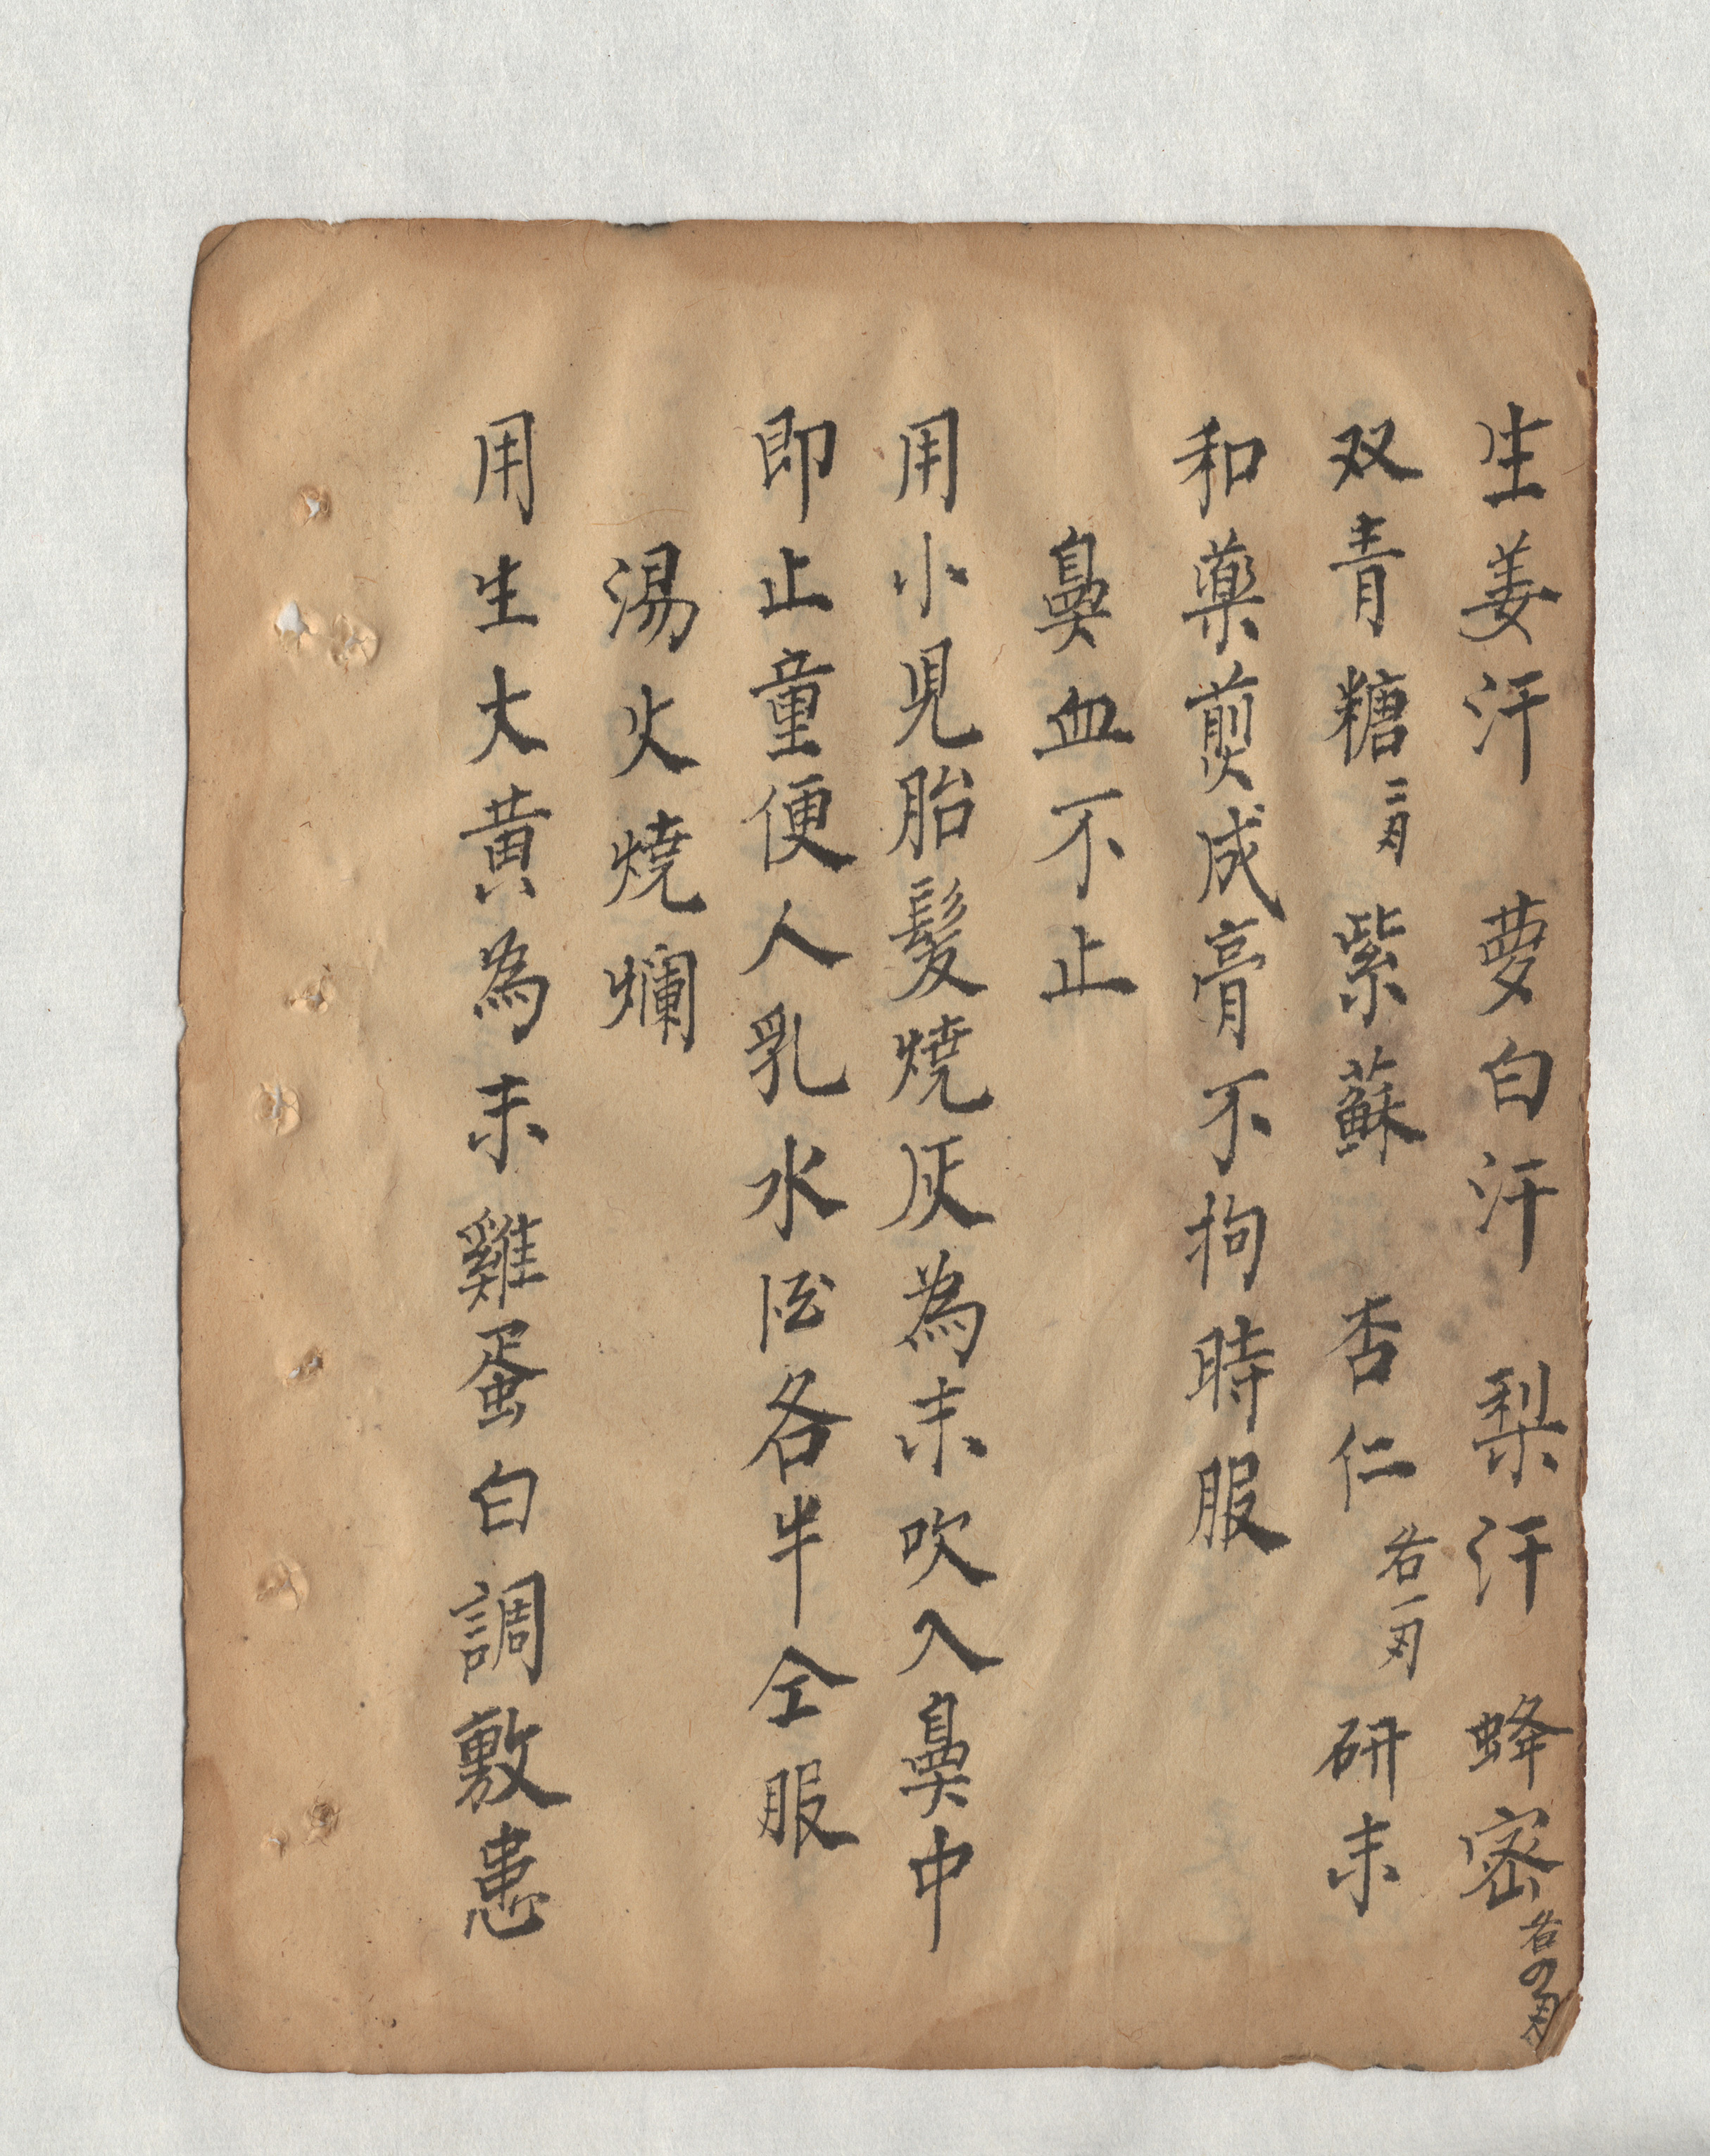 生姜汗 萝白汗 梨汗 蜂密各四両
双青糖二両 紫蘇 杏仁各一両 研末
和藥煎成膏不拘時服
鼻血不止
用小児胎髮燒灰為末吹入鼻中
即止童便人乳水酒各半仝服
湯火燒爛
用生大黃為末雞蛋白調敷患